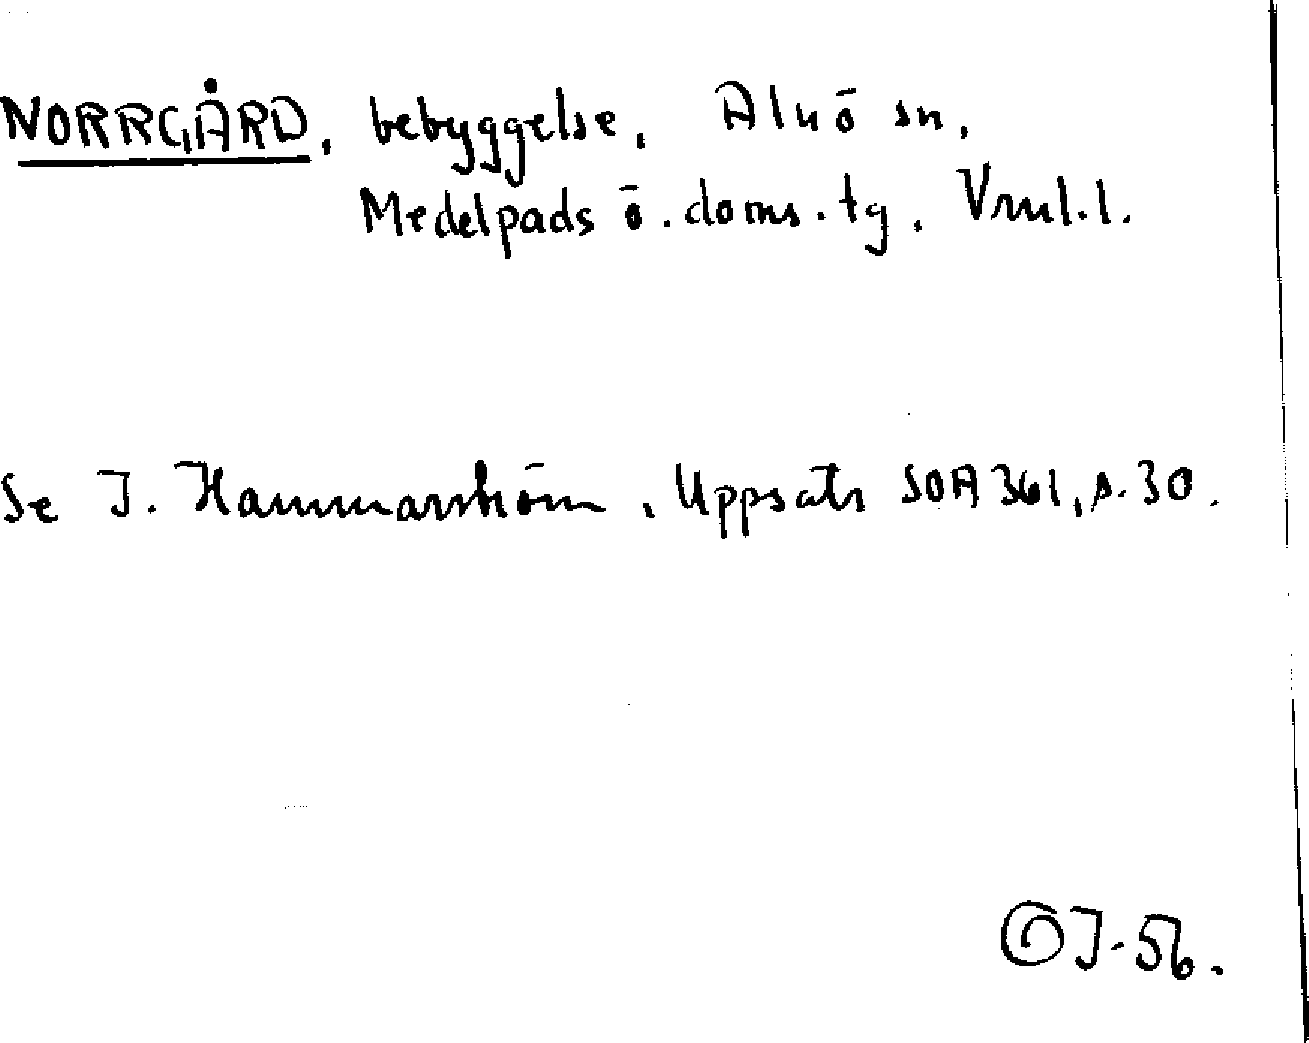 NORRGÅRD, bebyggelse, Alnö sn,
Medelpads ö. doms. tg, Vrnl.l.
Se I. Hammarström, Uppsats SOA 361, s. 30.
OJ-56.